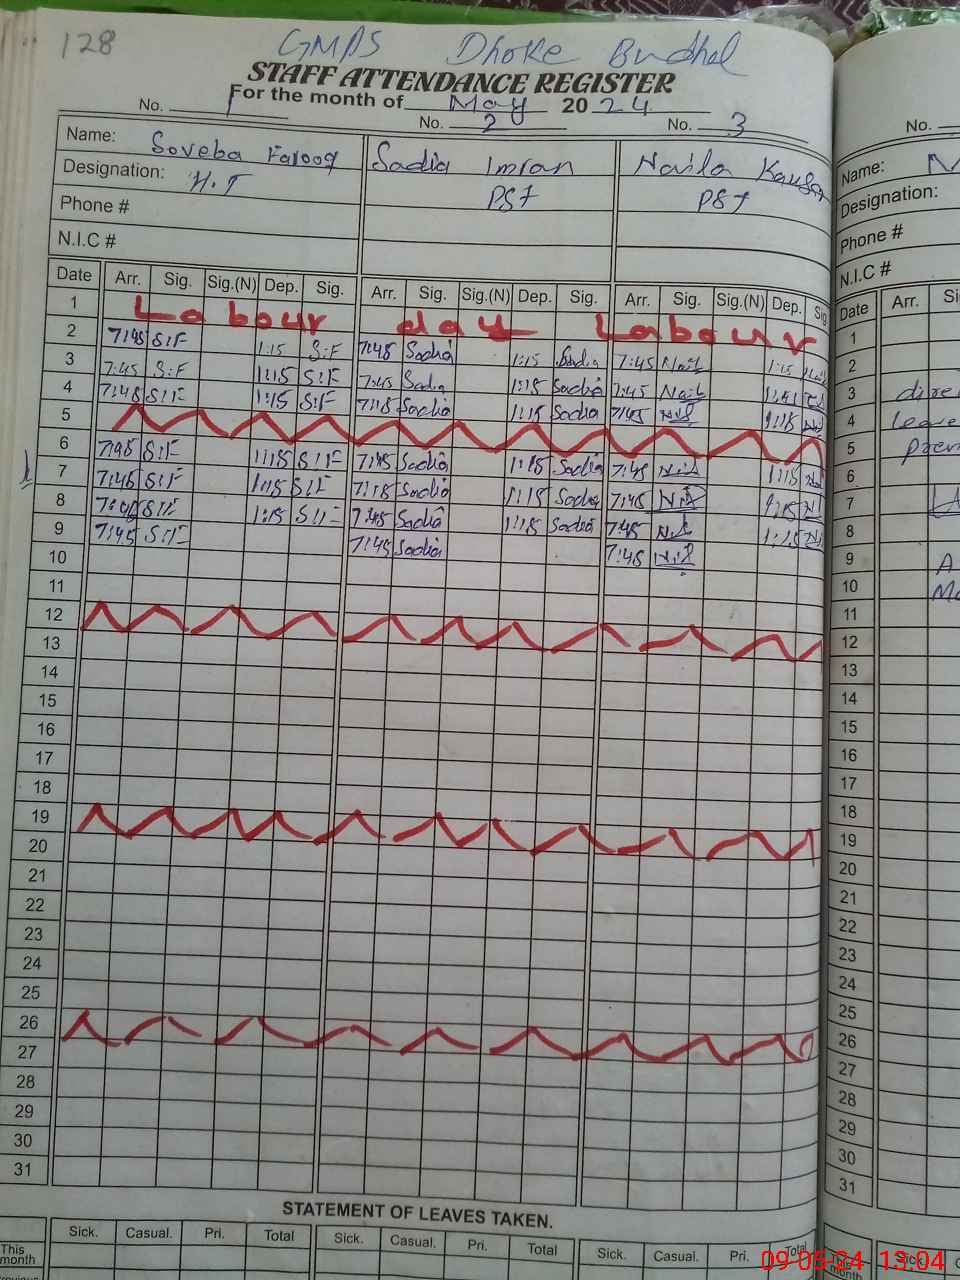 128 GMPS Dhoke Budhal
STAFF ATTENDANCE REGISTER
For the month of May 2024
No. 1 No. 2 No. 3
Name: Soveba Farooq Sadia Imran Naila Kausar
Designation: H.T PST PST
Phone #
N.I.C #
Date Arr. Sig. Sig.(N) Dep. Sig. Arr. Sig. Sig.(N) Dep. Sig. Arr. Sig. Sig.(N) Dep. Sig
1 Labour day Labour
2 7:45 S:F 1:15 S:F 7:45 Sadia 1:15 Sadia 7:45 Nail 1:15
3 7:45 S:F 1:15 S:F 7:45 Sadia 1:15 Sadia 7:45 Nail
4 7:45 S:F 1:15 S:F Sadia 1:15 Sadia 7:45 1:15
5
6 7:45 S:F 1:15 S:F 7:45 Sadia 1:15 Sadia 7:45 1:15
7 7:45 S:F 1:15 S:F Sadia 1:15 Sadia 7:45 1:15
8 S:F 1:15 S:F 7:45 Sadia 1:15 Sadia 7:45 1:15
9 7:45 S:F 7:45 Sadia 7:45
10
11
12
13
14
15
16
17
18
19
20
21
22
23
24
25
26
27
28
29
30
31
STATEMENT OF LEAVES TAKEN.
Sick. Casual. Pri. Total Sick. Casual. Pri. Total Sick. Casual. Pri. Total
This month
No.
Name:
Designation:
Phone #
N.I.C #
Date Arr.
1
2
3
4 leave
5
6
7
8
9
10
11
12
13
14
15
16
17
18
19
20
21
22
23
24
25
26
27
28
29
30
31
09-05-24 13:04